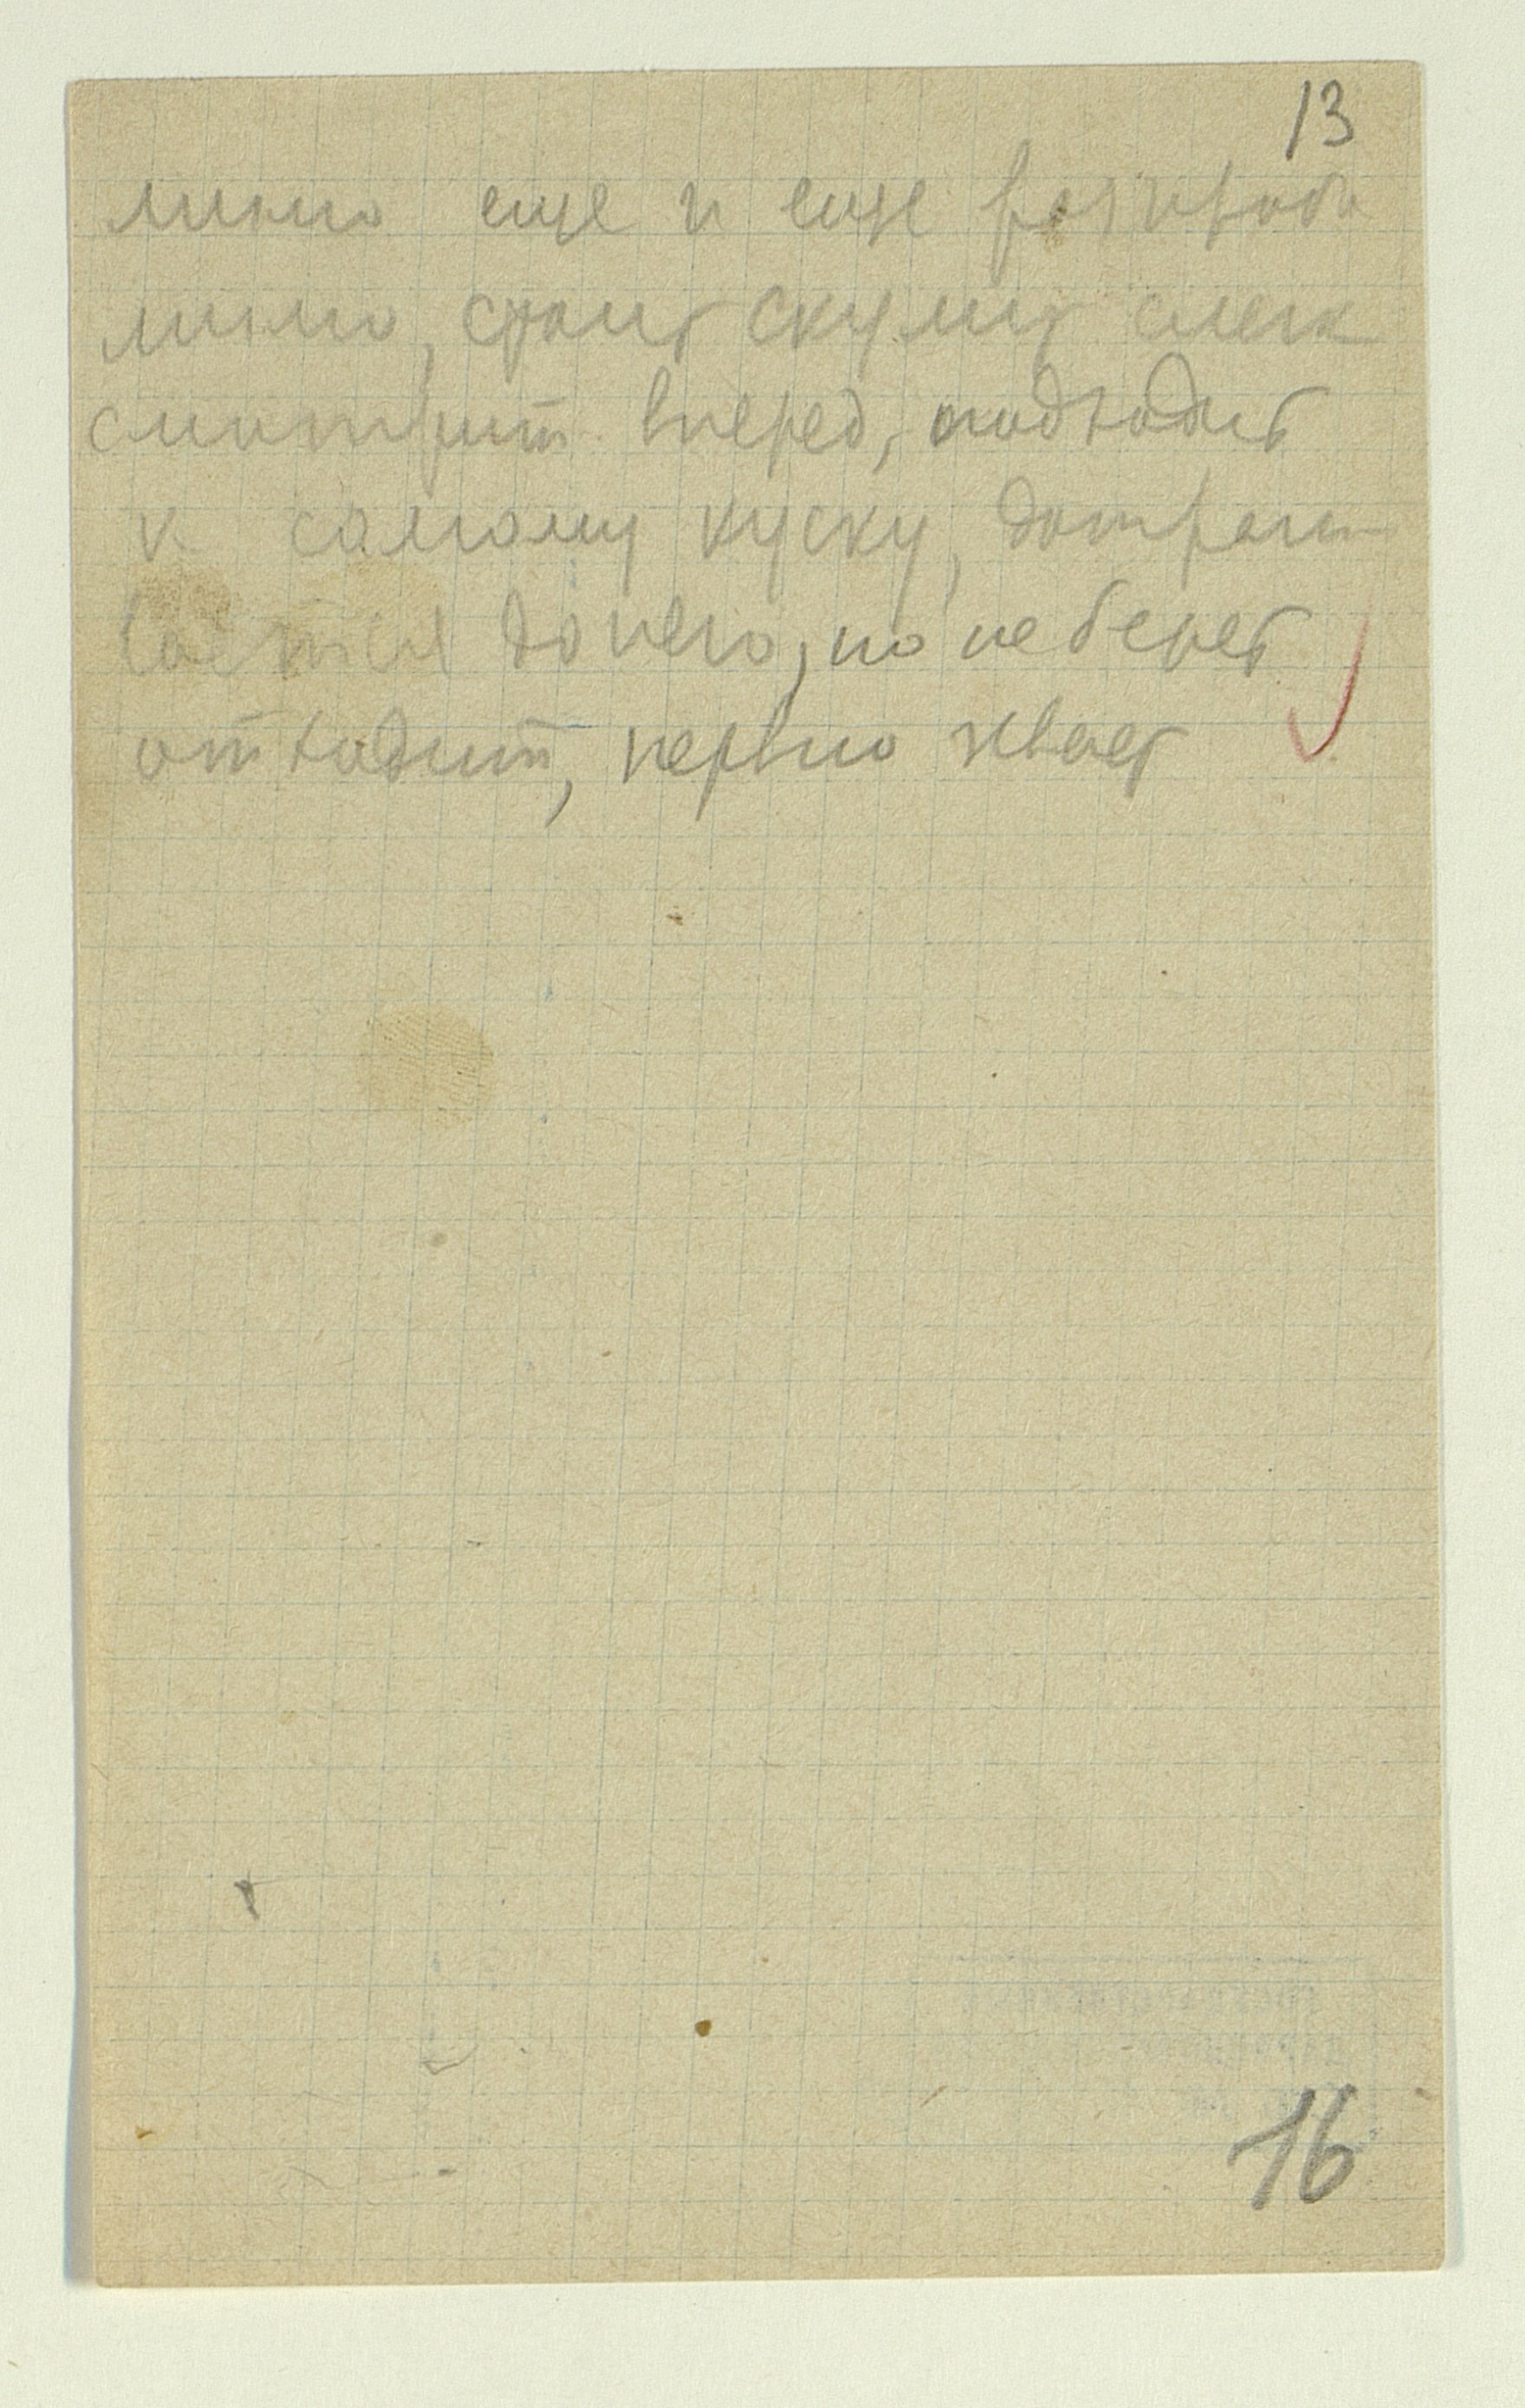 13
мимо еще и еще раз проби
мимо, стоит скулит слегк
смотрит вперед, подходит
к самому куску, дотраги
вается до него, но не берет
отходит, нервно зевает
16